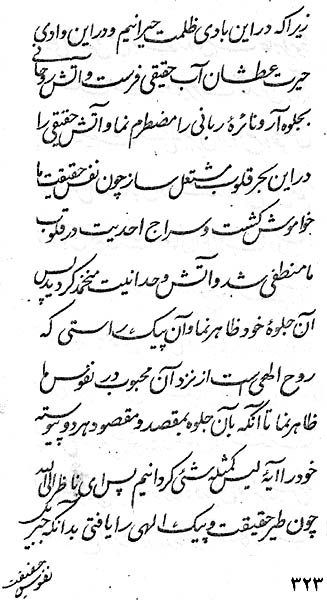 زیرا که در این بادی ظلمت حیرانیم و در این وادی
حیرت عطشان آب حقیقی فرست و آتش روحانی
بجلوه آر و نائرهٔ ربانی را مضطرم نما و آتش حقیقی را
در این بحر قلوب مشتعل ساز چون نفس حقیقت ما
خواموش گشت و سراج احدیت در قلوب
ما منطفی شد و آتش وحدانیت منخمد گردید پس
آن جلوهٔ خود ظاهر نما و آن پیک راستی که
روح الهی است از نزد آن محبوب در نفوس ما
ظاهر نما تا آنکه بآن جلوه بمقصد و مقصود هر دو پیوسته
خود را آیهٔ لیس کمثله شئ گردانیم پس ای ناظر الی الله
چون طیر حقیقت و پیک الهی را یافتی بدانکه جبریل
نفوس حقیقت
۳۲۳